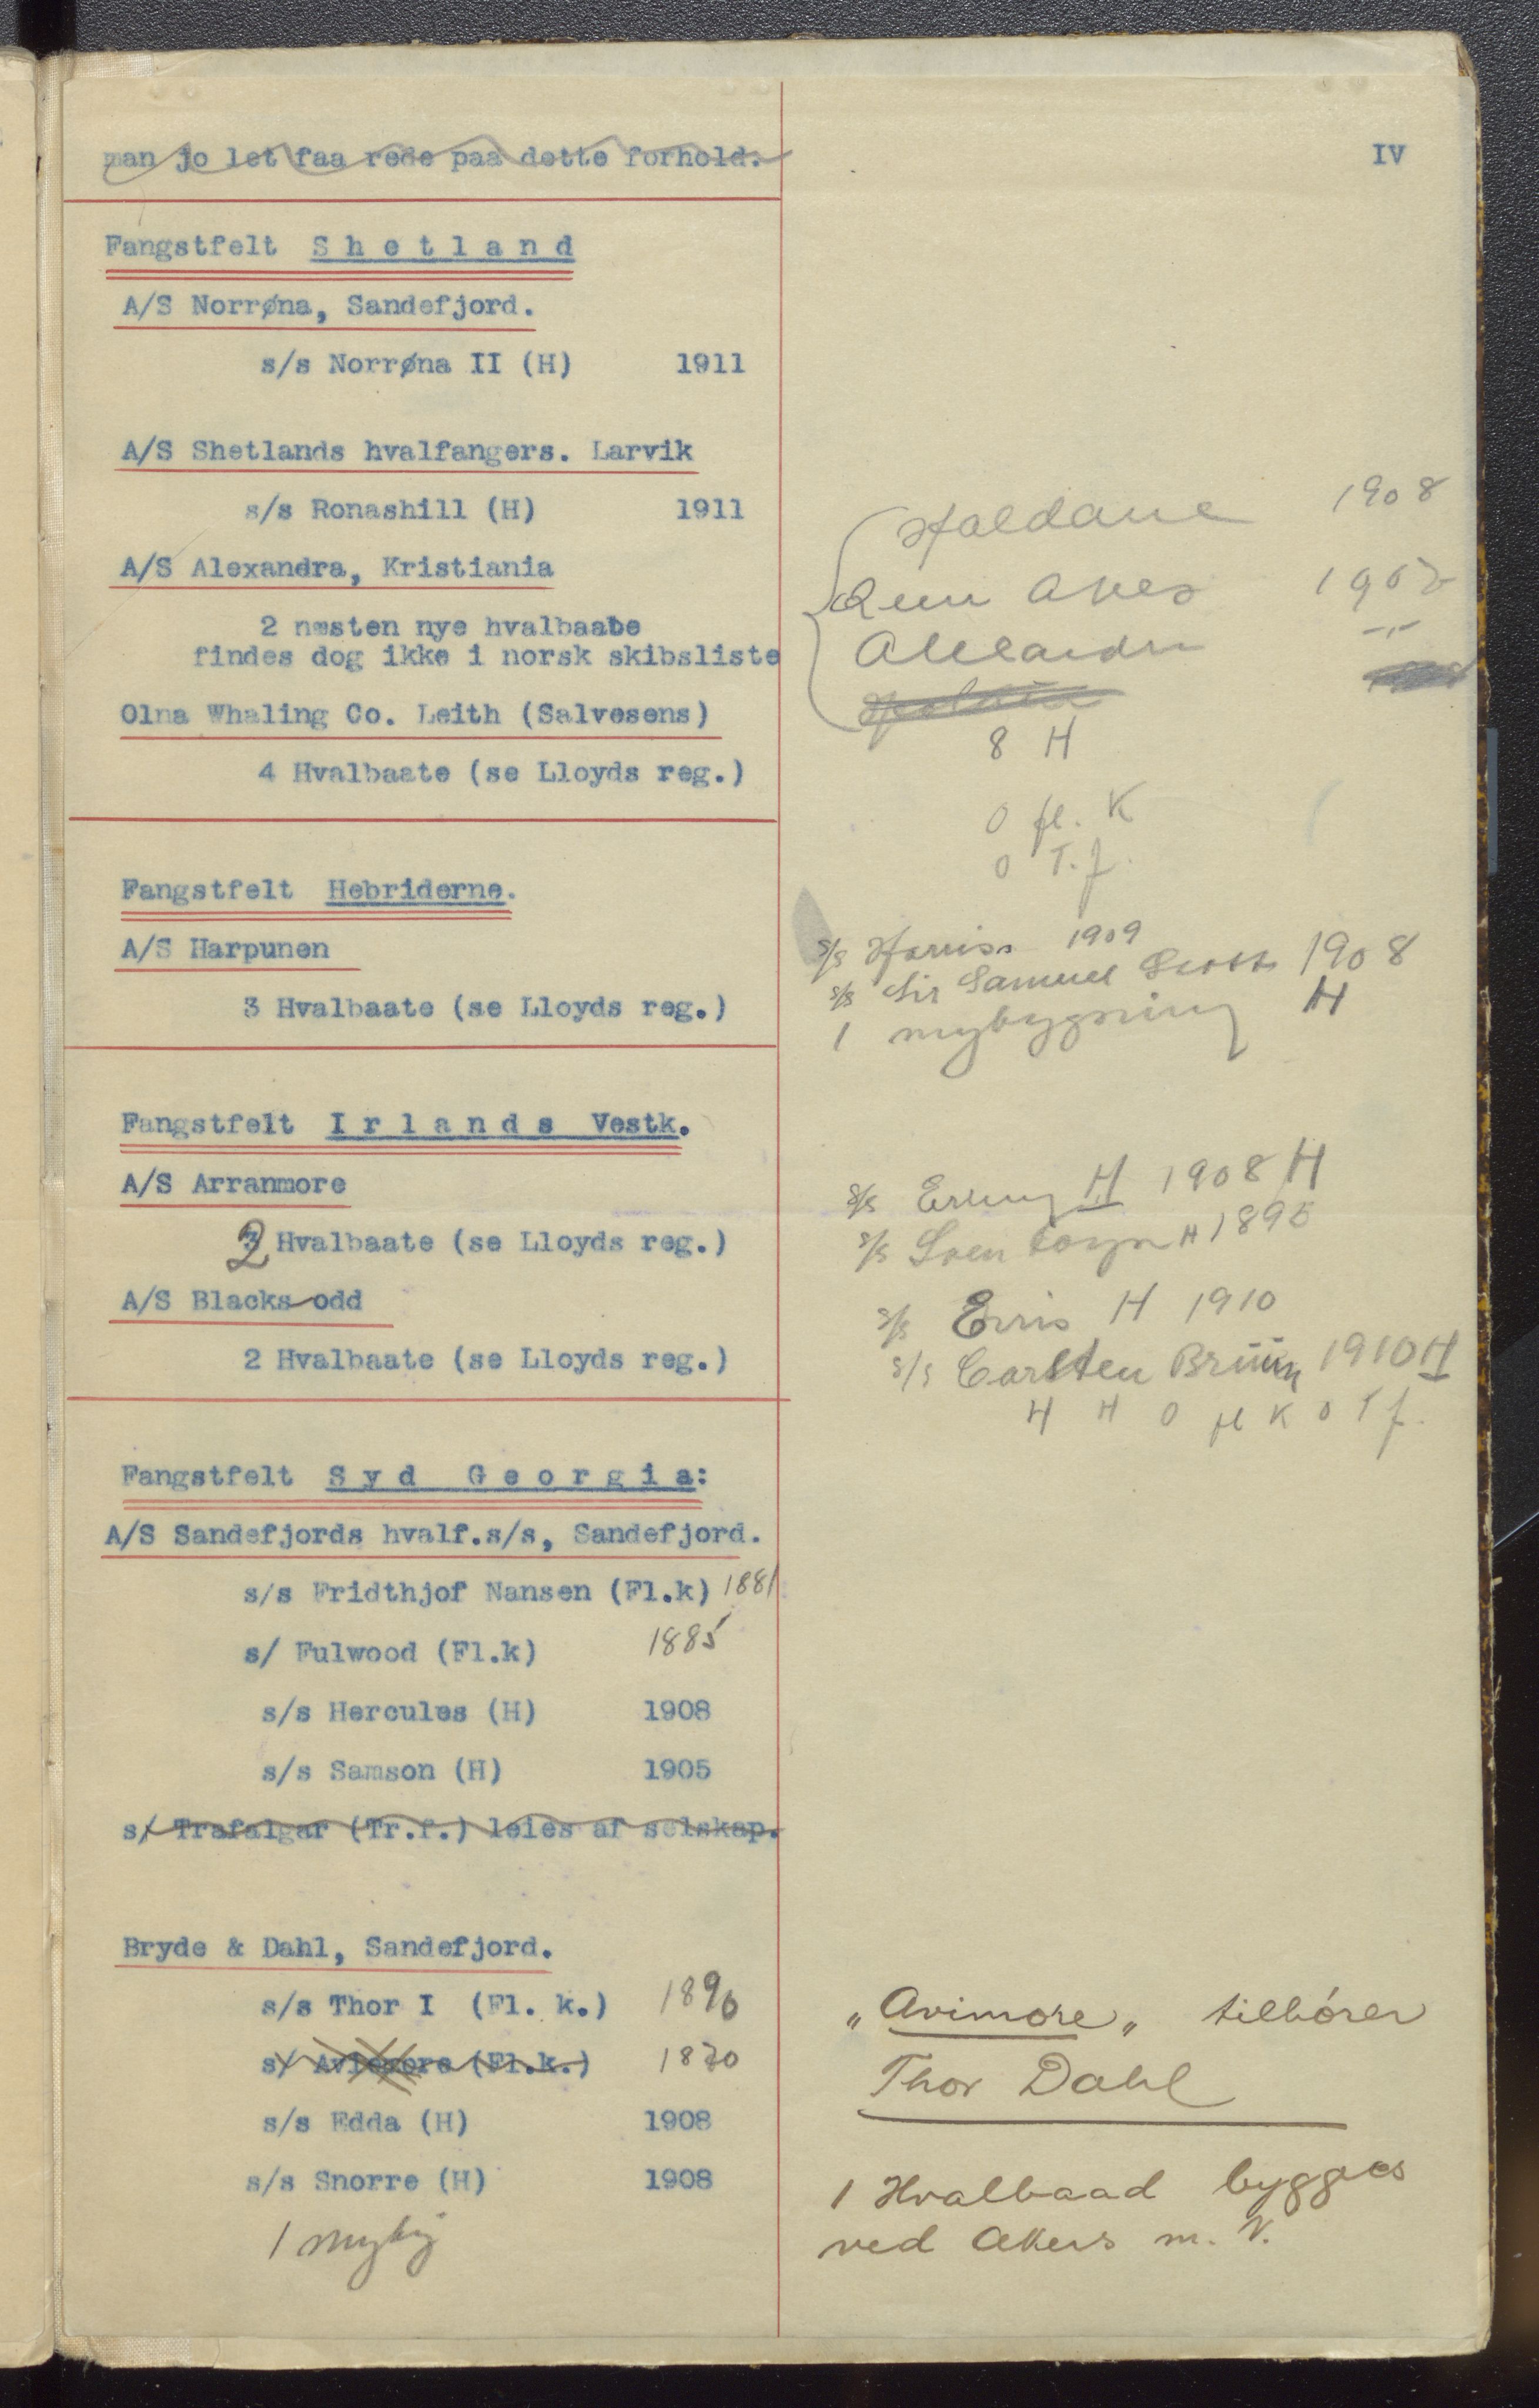 man jo let faa rede paa dette forhold.
IV
Fangstfelt Shetland
A/S Norrøna, Sandefjord.
s/s Norrøna II (H) 1911
A/S Shetlands hvalfangers. Larvik
s/s Ronashill (H) 1911
Haldane 1908
A/S Alexandra, Kristiania
1907
2 næsten nye hvalbaate
findes dog ikke i norsk skibsliste
Olna Whaling Co. Leith (Salvesens)
8 H
4 Hvalbaate (se Lloyds reg.)
0 fl. K
0 T.f.
Fangstfelt Hebriderne.
A/S Harpunen
s/s Harris 1909
s/s Sir Samuel Scott 1908
3 Hvalbaate (se Lloyds reg.)
1 nybygning H
Fangstfelt Irlands Vestk.
A/S Arranmore
s/s Erling H 1908 H
2 Hvalbaate (se Lloyds reg.)
s/s Sven Foyn H 1895
A/S Blacks odd
s/s Erris H 1910
2 Hvalbaate (se Lloyds reg.)
s/s Carsten Bruun 1910 H
4 H 0 fl K 0 T f.
Fangstfelt Syd Georgia:
A/S Sandefjords hvalf.s/s, Sandefjord.
s/s Fridthjof Nansen (Fl.k) 1881
s/ Fulwood (Fl.k) 1885
s/s Hercules (H) 1908
s/s Samson (H) 1905
s/ Trafalgar (Tr.f.) leies af selskap.
Bryde & Dahl, Sandefjord.
s/s Thor I (Fl. k.) 1890
"Avimore" tilhører
s/ (Fl.k.) 1870
Thor Dahl
s/s Edda (H) 1908
s/s Snorre (H) 1908
1 Hvalbaad bygges
1 nybyg
ved Akers m. V.